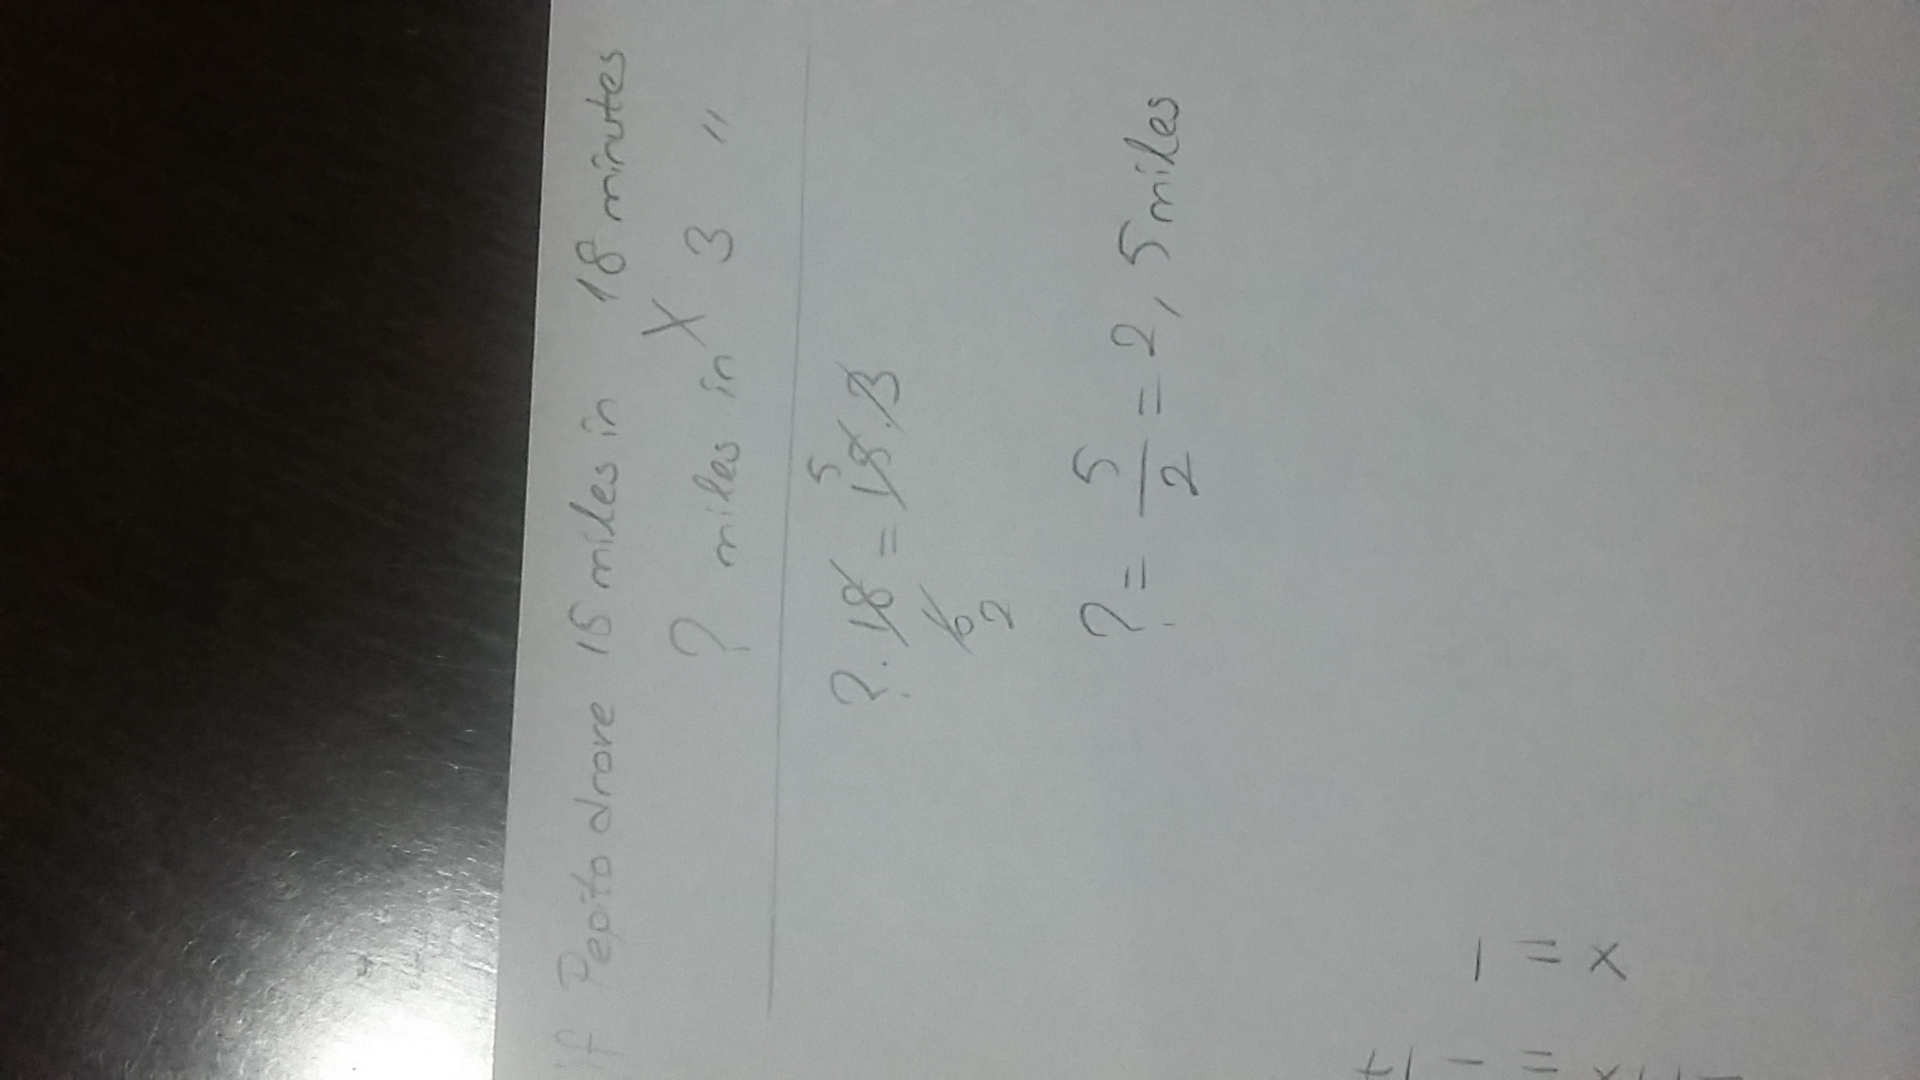 if Pepito drove 15 miles in 18 minutes
? miles in X 3 "
5
? . 18 = 15 . 3
6
2
? = 5/2 = 2,5 miles
1 = x